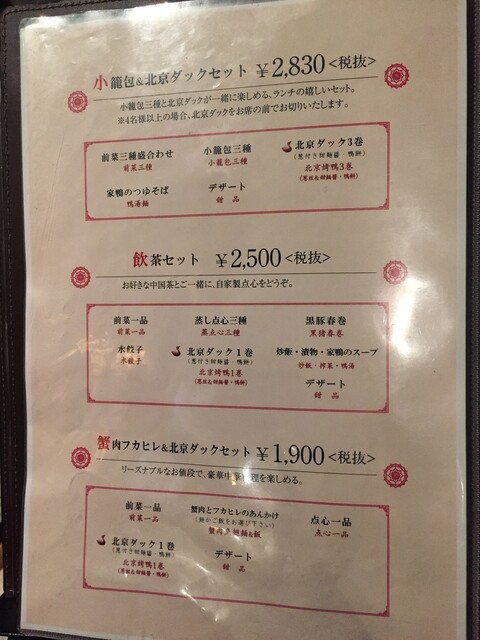 小籠包&北京ダックセット ￥2,830<税抜>
小籠包三種と北京ダックが一緒に楽しめる、ランチの嬉しいセット。
※4名様以上の場合、北京ダックをお席の前でお切りいたします。
前菜三種盛合わせ
前菜三種
小籠包三種
小籠包三種
北京ダック3巻
(葱付き甜麺醤・鴨餅)
北京烤鴨3巻
家鴨のつゆそば
鴨湯麺
デザート
甜品
飲茶セット ￥2,500<税抜>
お好きな中国茶とご一緒に、自家製点心をどうぞ。
前菜一品
前菜一品
蒸し点心三種
蒸点心三種
黒豚春巻
黒猪春巻
水餃子
水餃子
北京ダック1巻
(葱付き甜麺醤・鴨餅)
北京烤鴨1巻
炒飯・漬物・家鴨のスープ
炒飯・搾菜・鴨湯
デザート
甜品
蟹肉フカヒレ&北京ダックセット ￥1,900<税抜>
リーズナブルなお値段で、豪華中華料理を楽しめる。
前菜一品
前菜一品
蟹肉とフカヒレのあんかけ
(麺かご飯をお選び下さい)
点心一品
点心一品
北京ダック1巻
(葱付き甜麺醤・鴨餅)
北京烤鴨1巻
デザート
甜品